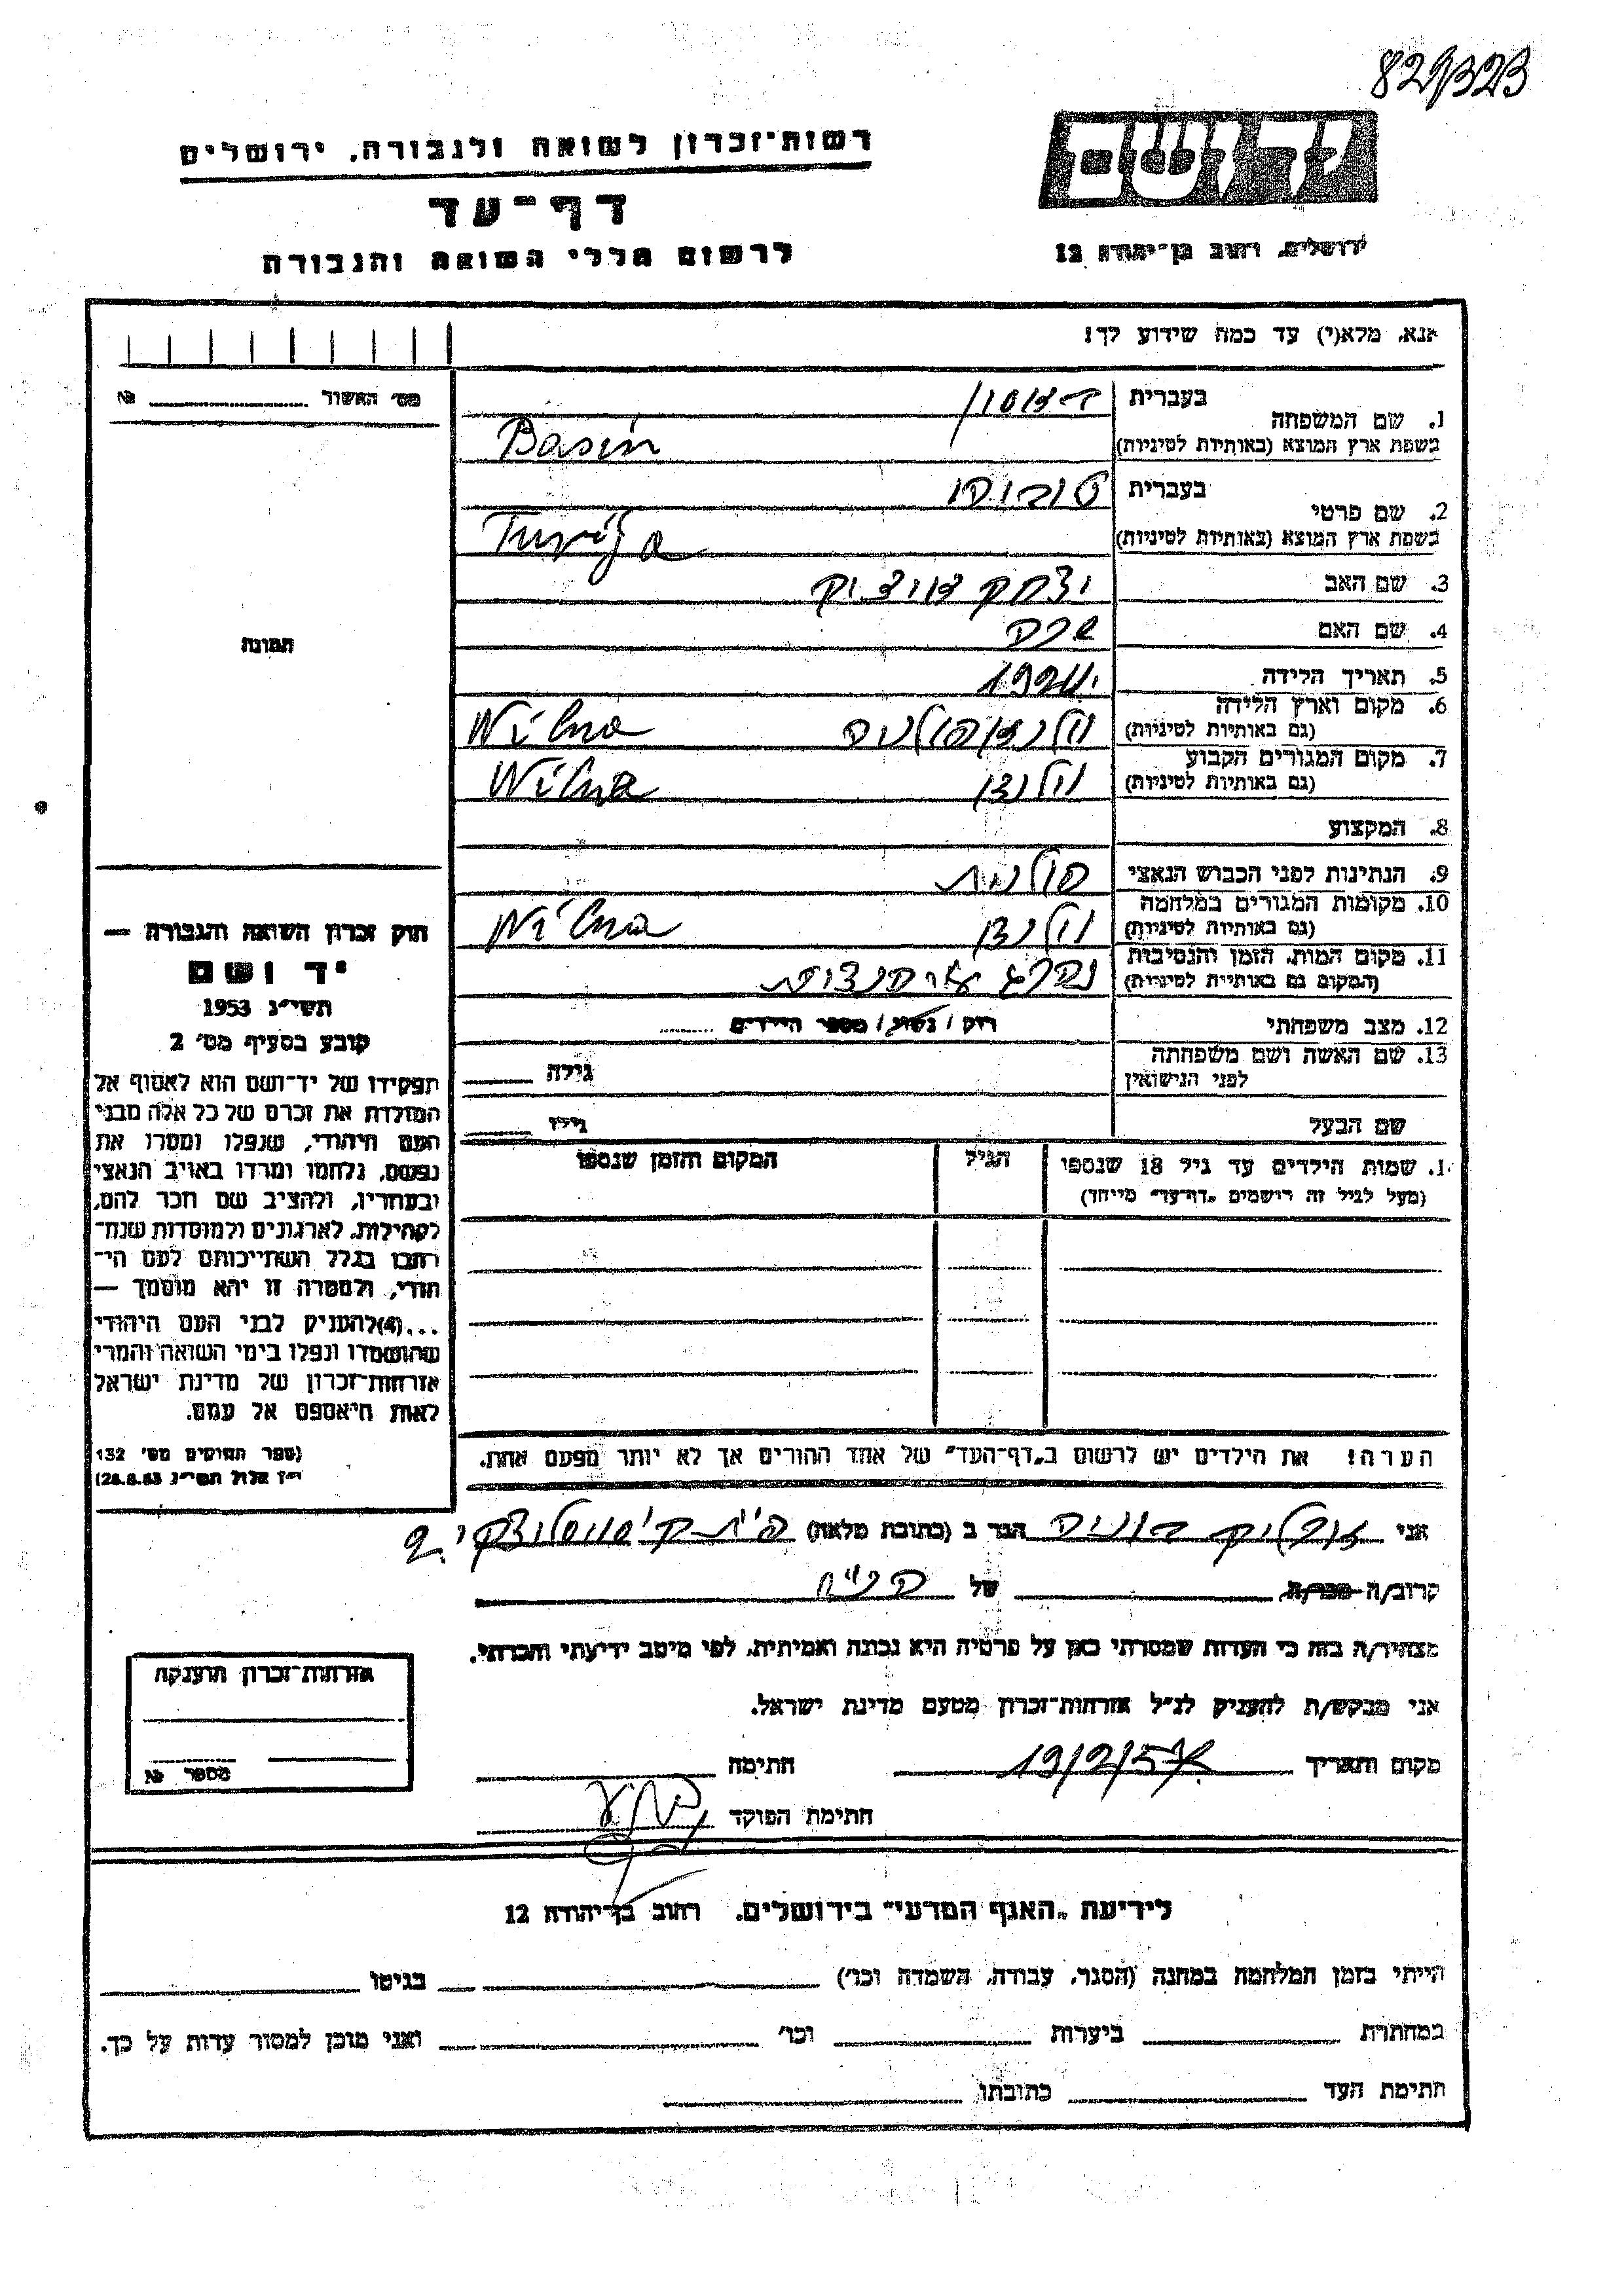 829323
יד ושם
רשות־זכרון לשואה ולגבורה, ירושלים
דף־עד
לרשום חללי השואה והגבורה
ירושלים, רחוב בן־יהודה 12
אנא, מלא(י) עד כמה שידוע לך!
מס' האשור № 
בעברית
1. שם המשפחה
בשפת ארץ המוצא (באותיות לטיניות) Basin
בעברית
2. שם פרטי
בשפת ארץ המוצא (באותיות לטיניות)
3. שם האב יצחק
4. שם האם
5. תאריך הלידה 1924
6. מקום וארץ הלידה Wilna
(גם באותיות לטיניות)
7. מקום המגורים הקבוע
(גם באותיות לטיניות) Wilna
8. המקצוע
9. הנתינות לפני הכבוש הנאצי פולנית
10. מקומות המגורים במלחמה
(גם באותיות לטיניות) Wilna
11. מקום המות, הזמן והנסיבות
(המקום גם באותיות לטיניות)
12. מצב משפחתי רווק / נשוי / מספר הילדים
13. שם האשה ושם משפחתה גילה
לפני הנישואין
שם הבעל גילו
1. שמות הילדים עד גיל 18 שנספו הגיל המקום והזמן שנספו
(מעל לגיל זה רישמים „דף־עד" מייחד)
הערה! את הילדים יש לרשום ב„דף־העד" של אחד ההורים אך לא יותר מפעם אחת.
תמונה
חוק זכרון השואה והגבורה —
יד ושם
תשי"ג 1953
קובע בסעיף מס' 2
תפקידו של יד־ושם הוא לאסוף אל
המולדת את זכרם של כל אלה מבני
העם היהודי, שנפלו ומסרו את
נפשם, נלחמו ומרדו באויב הנאצי
ובעוזריו, ולהציב שם וזכר להם,
לקהילות, לארגונים ולמוסדות שנח־
רבו בגלל השתייכותם לעם הי־
הודי, ולמטרה זו יהא מוסמך —
...(4)להעניק לבני העם היהודי
שהושמדו ונפלו בימי השואה והמרי
אזרחות־זכרון של מדינת ישראל
לאות היאספם אל עמם.
(ספר החוקים מס' 132
י"ז אלול תשי"ג 28.8.53)
אני הגר ב (כתובת מלאה)
קרוב/ה מכר/ה של
מצהיר/ה בזה כי העדות שמסרתי כאן על פרטיה היא נכונה ואמיתית, לפי מיטב ידיעתי והכרתי.
אני מבקש/ת להעניק לנ"ל אזרחות־זכרון מטעם מדינת ישראל.
מקום ותאריך 19/2/57 חתימה
חתימת הפוקד
אזרחות־זכרון הוענקה
מספר №
לידיעת „האגף המדעי" בירושלים, רחוב בן־יהודה 12
הייתי בזמן המלחמה במחנה (הסגר, עבודה, השמדה וכו') בגיטו
במחתרת ביערות וכו' ואני מוכן למסור עדות על כך.
חתימת העד כתובתו